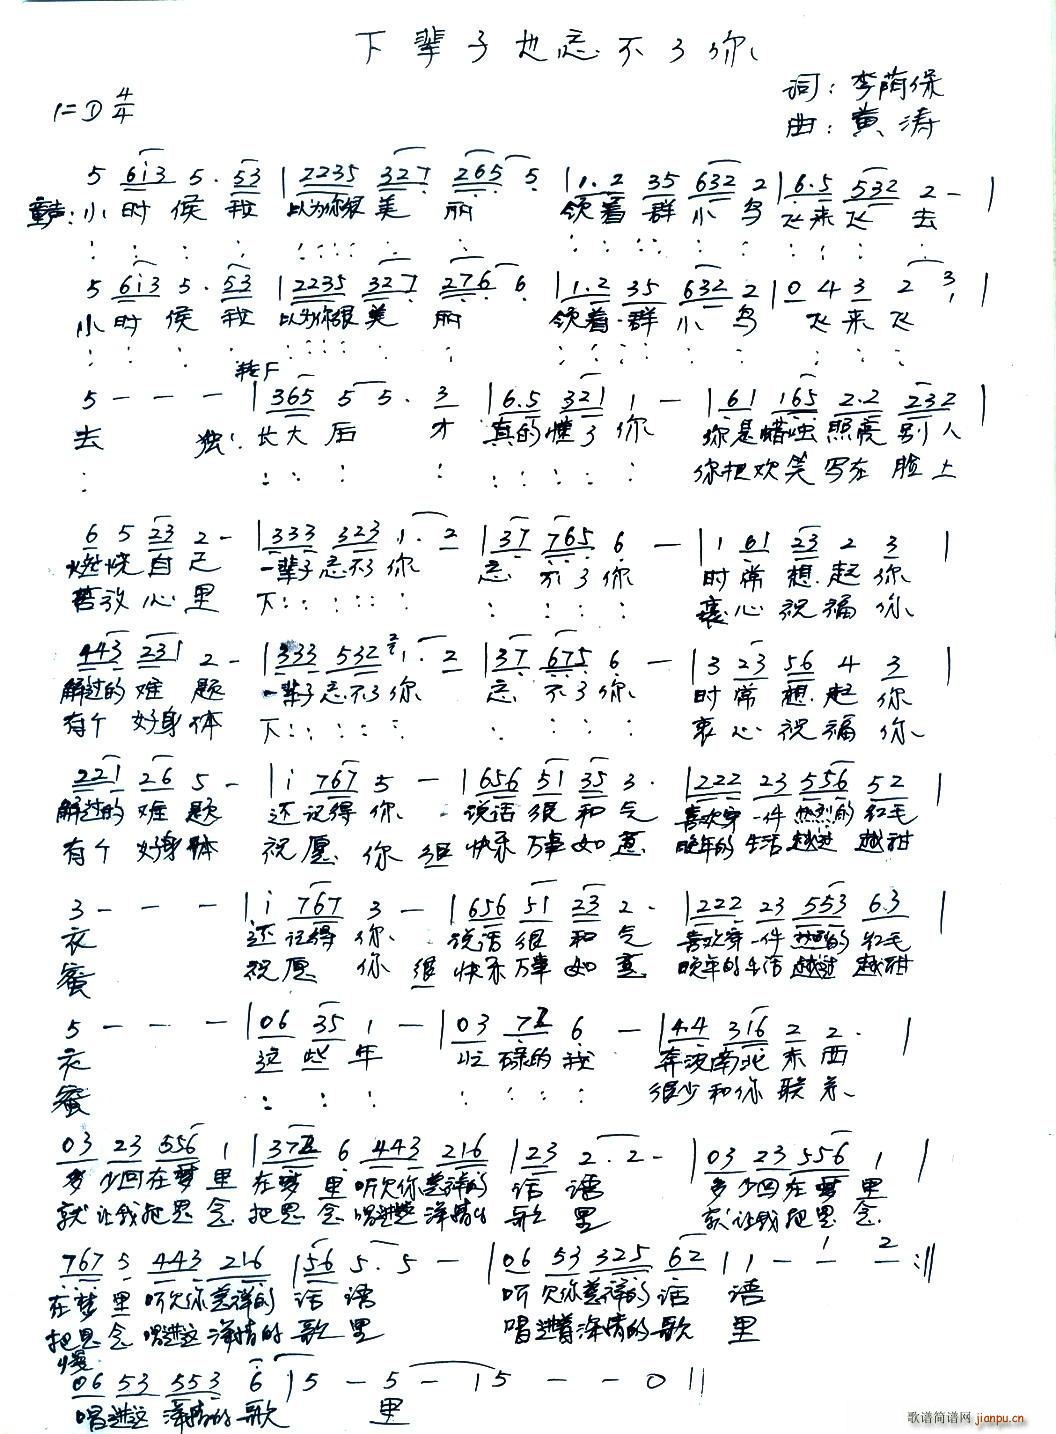 下辈子也忘不了你
词：李荫保
1=D 4/4
曲：黄涛
5 6i3 5. 53 |2235 327 265 5 |1.2 35 632 2 |6.5 532 2 - |
童声：小时候我 以为你很美丽 领着群小鸟飞来飞去
5 6i3 5. 53 |2235 327 276 6 |1.2 35 632 2 |0 4 3 2 3 |
小时候我 以为你很美丽 领着一群小鸟 飞来飞
转F
5 - - - |365 5 5. 3 |6.5 321 1 - |61 165 2.2 232 |
去 独：长大后才 真的懂了你 你是蜡烛照亮别人
你把欢笑写在脸上
6 5 23 2 - |333 323 1. 2 |37 765 6 - |1 61 23 2 3 |
燃烧自己 一辈子忘不了你 忘不了你 时常想起你
苦放心里 下 衷心祝福你
443 231 2 - |333 532 1. 2 |37 675 6 - |3 23 56 4 3 |
解过的难题 一辈子忘不了你 忘不了你 时常想起你
有个好身体 下 衷心祝福你
221 26 5 - |i 767 5 - |656 51 35 3. |222 23 556 52 |
解过的难题 还记得你 说话很和气 喜欢穿一件热烈的红毛
有个好身体 祝愿你很快乐万事如意 晚年的生活越过越甜
3 - - - |i 767 3 - |656 51 23 2. |222 23 553 6.3 |
衣 还记得你 说话很和气 喜欢穿一件热烈的红毛
蜜 祝愿你很快乐万事如意 晚年的生活越过越甜
5 - - - |06 35 1 - |03 72 6 - |4.4 316 2 2. |
衣 这些年 忙碌的我 奔波南北东西
蜜 很少和你联系
03 23 556 1 |372 6 443 216 |23 2. 2 - |03 23 556 1 |
多少回在梦里 在梦里听久你慈祥的话语 多少回在梦里
就让我把思念 把思念唱进这深情的歌里 就让我把思念
767 5 443 216 |56 5. 5 - |06 53 325 62 |1 - 1 2 :||
在梦里 听久你慈祥的话语 听久你慈祥的话语
把思念 唱进这深情的歌里 唱进着深情的歌里
慢
06 53 553 6 |5 - 5 - |5 - - 0 ||
唱进这深情的歌里
歌谱简谱网 jianpu.cn